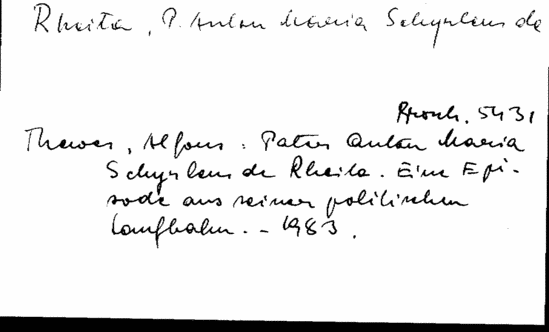 Rheita, P. Anton Maria Schyrleus de
Brosch. 5431
Thewes, Alfons: Pater Anton Maria
Schyrleus de Rheita. Eine Epi-
sode aus seiner politischen
Laufbahn. - 1983.